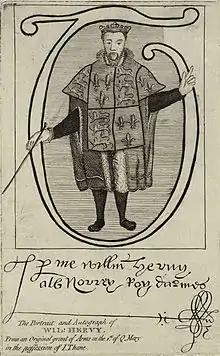 p me willm hervy
als Norrey Roy darmes
The Portrait and Autograph of
WIL: HERVY.
From an Original grant of Arms in the 1st of Q. Mary
in the possession of I. Thane.